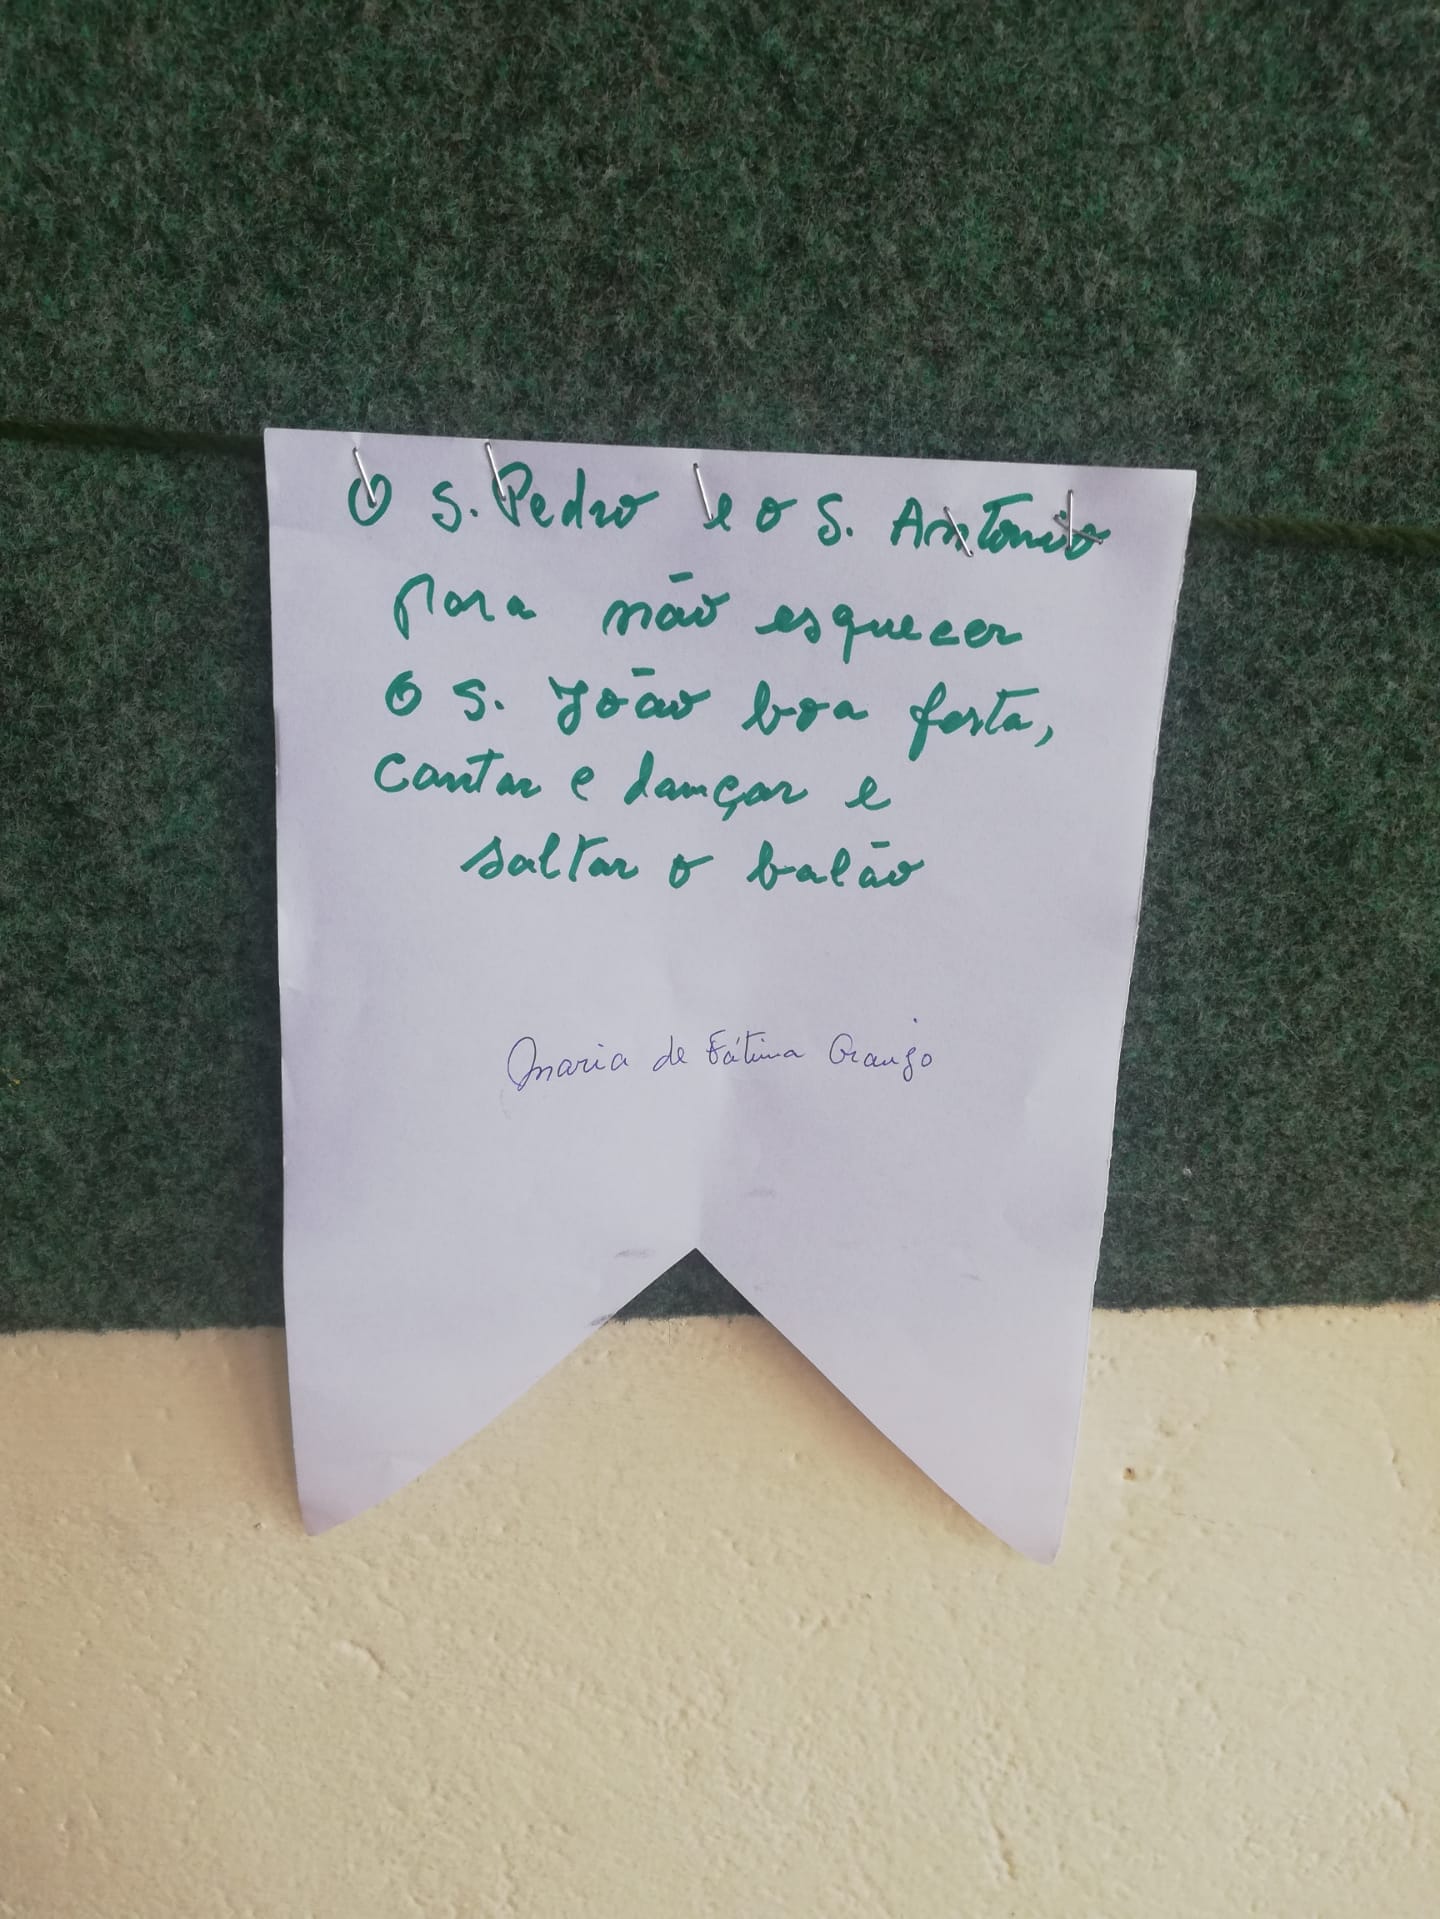 O S. Pedro e o S. Antonio
para não esquecer
O S. João boa festa,
cantar e dançar e
saltar o balão
Maria de Fátima Araujo